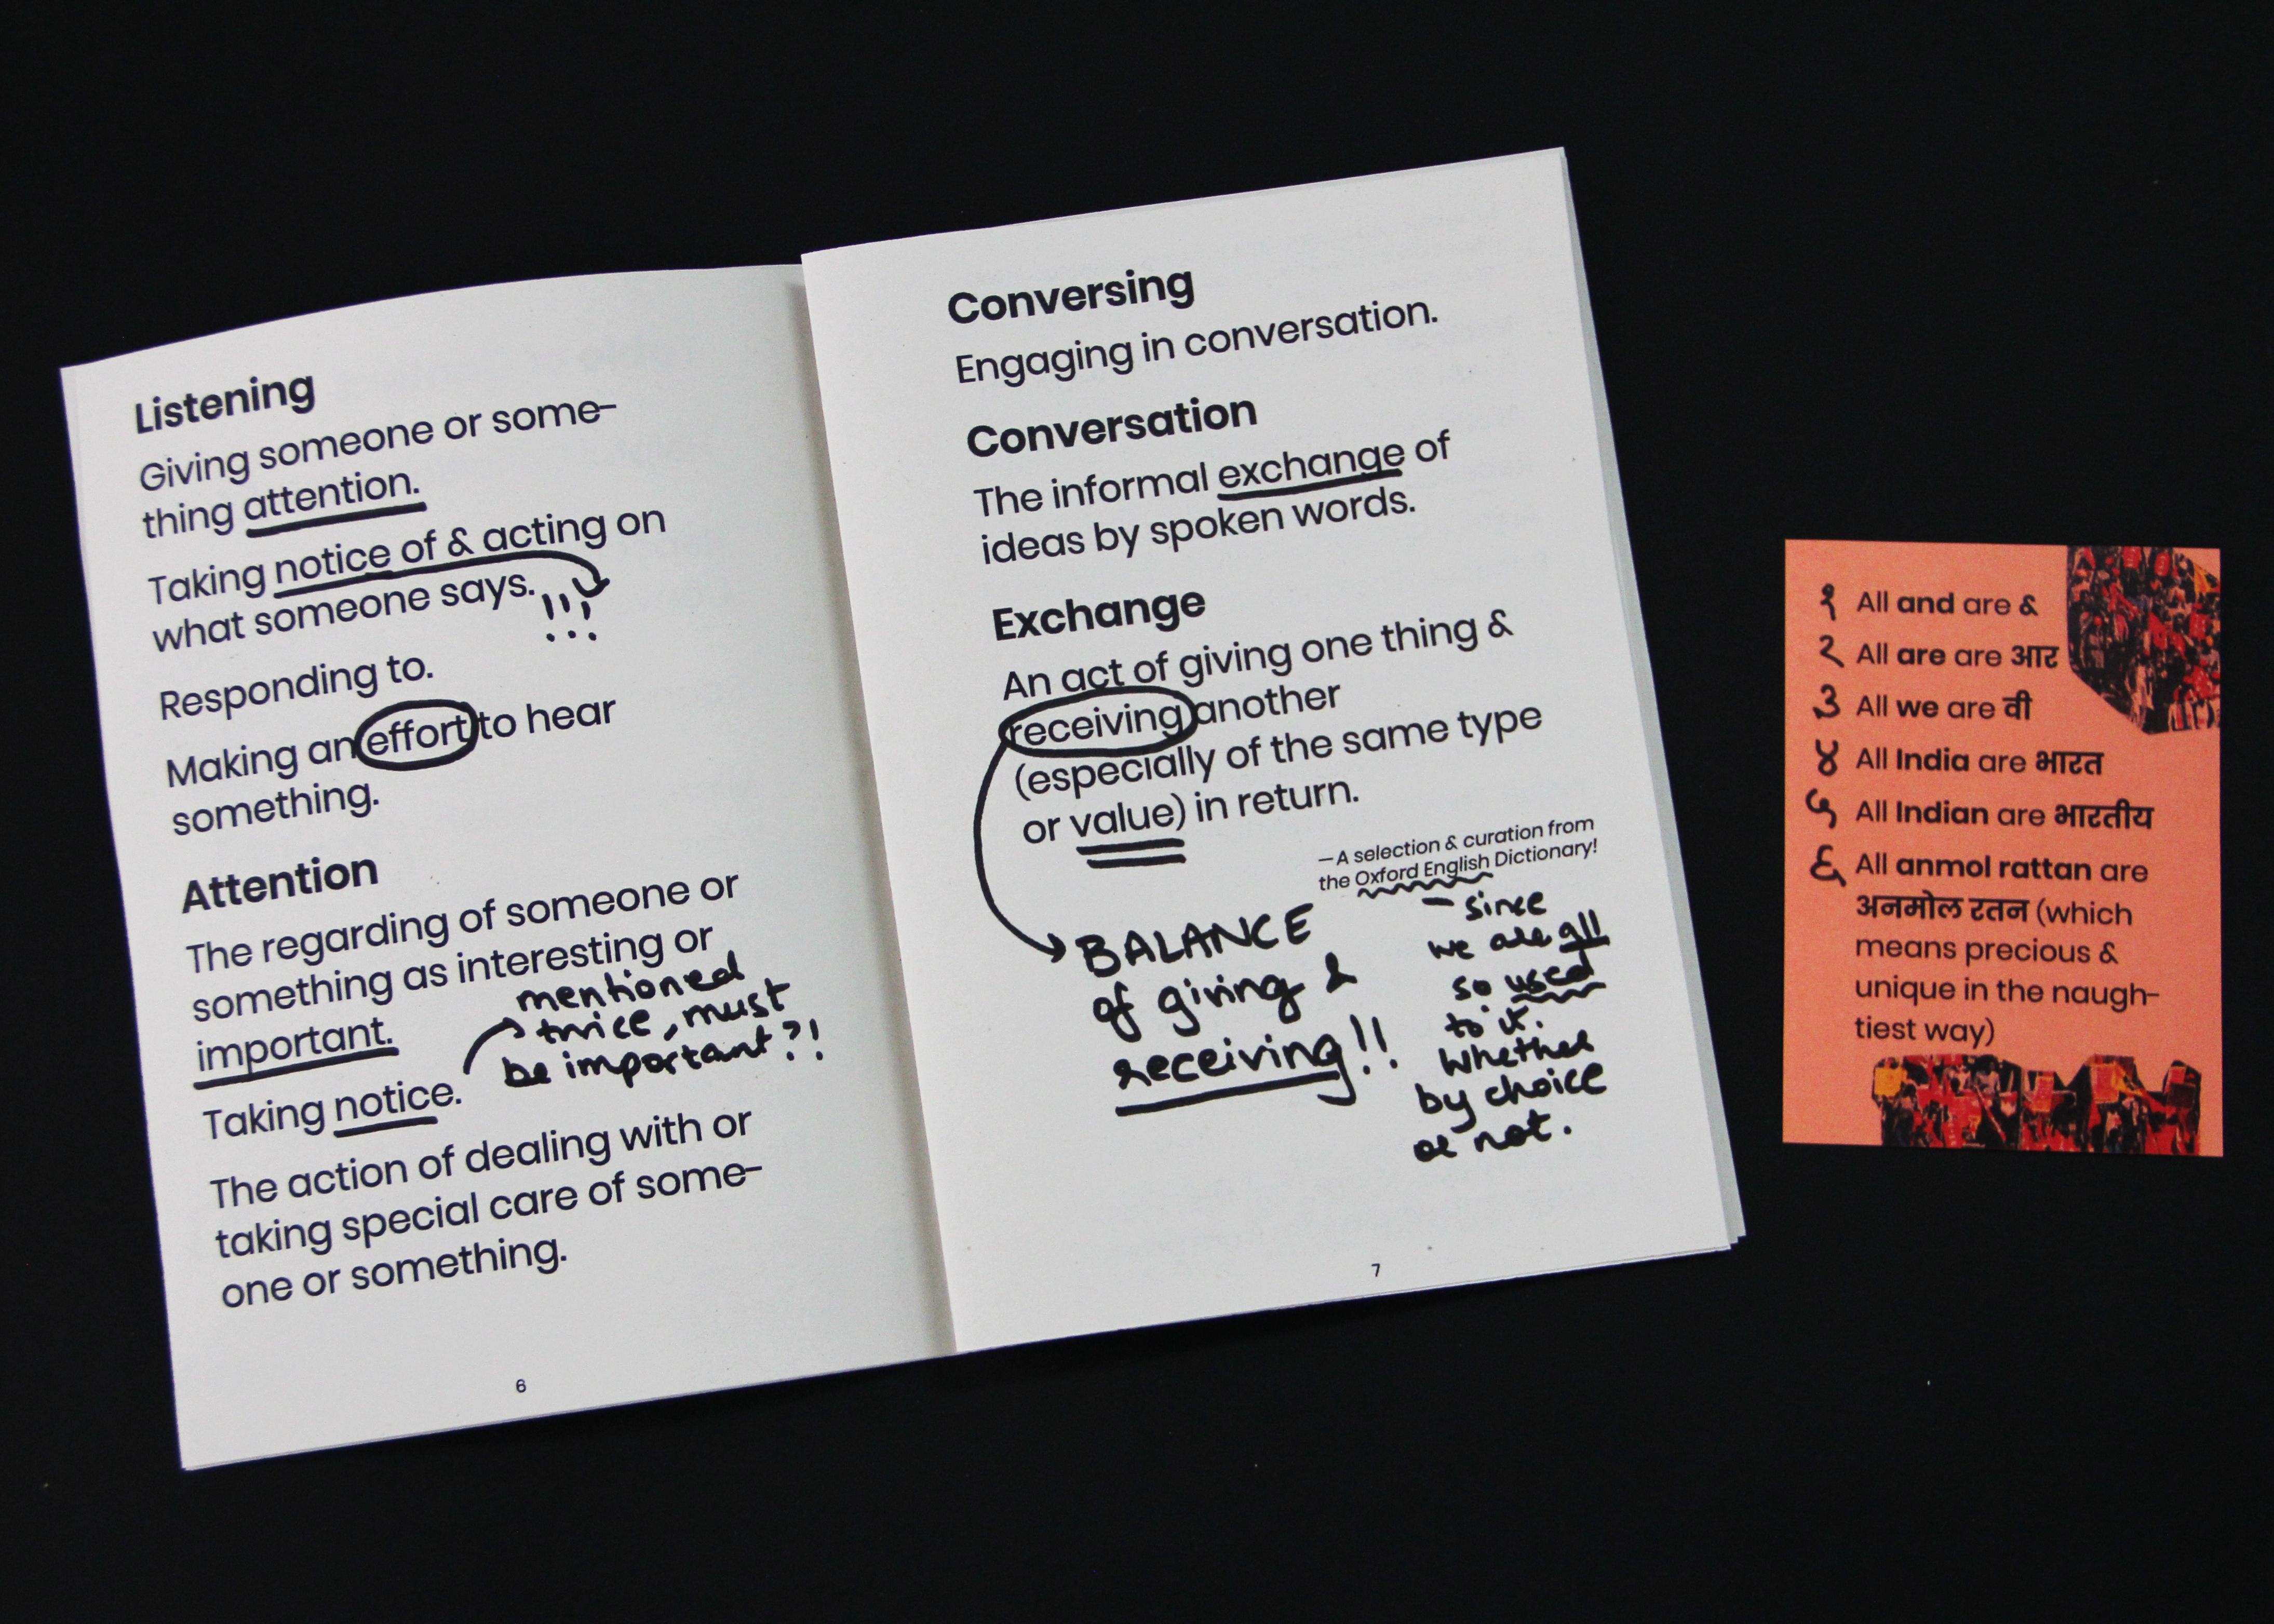 Listening
Giving someone or some-
thing attention.
Taking notice of & acting on
what someone says.
!!!
Responding to.
Making an effort to hear
something.
Attention
The regarding of someone or
something as interesting or
important.
mentioned
twice, must
be important?!
Taking notice.
The action of dealing with or
taking special care of some-
one or something.
6
Conversing
Engaging in conversation.
Conversation
The informal exchange of
ideas by spoken words.
Exchange
An act of giving one thing &
receiving another
(especially of the same type
or value) in return.
—A selection & curation from
the Oxford English Dictionary!
BALANCE
of giving &
receiving!!
– since
we are all
so used
to it.
Whether
by choice
or not.
7
१ All and are &
२ All are are आर
३ All we are वी
४ All India are भारत
५ All Indian are भारतीय
६ All anmol rattan are
अनमोल रतन (which
means precious &
unique in the naugh-
tiest way)